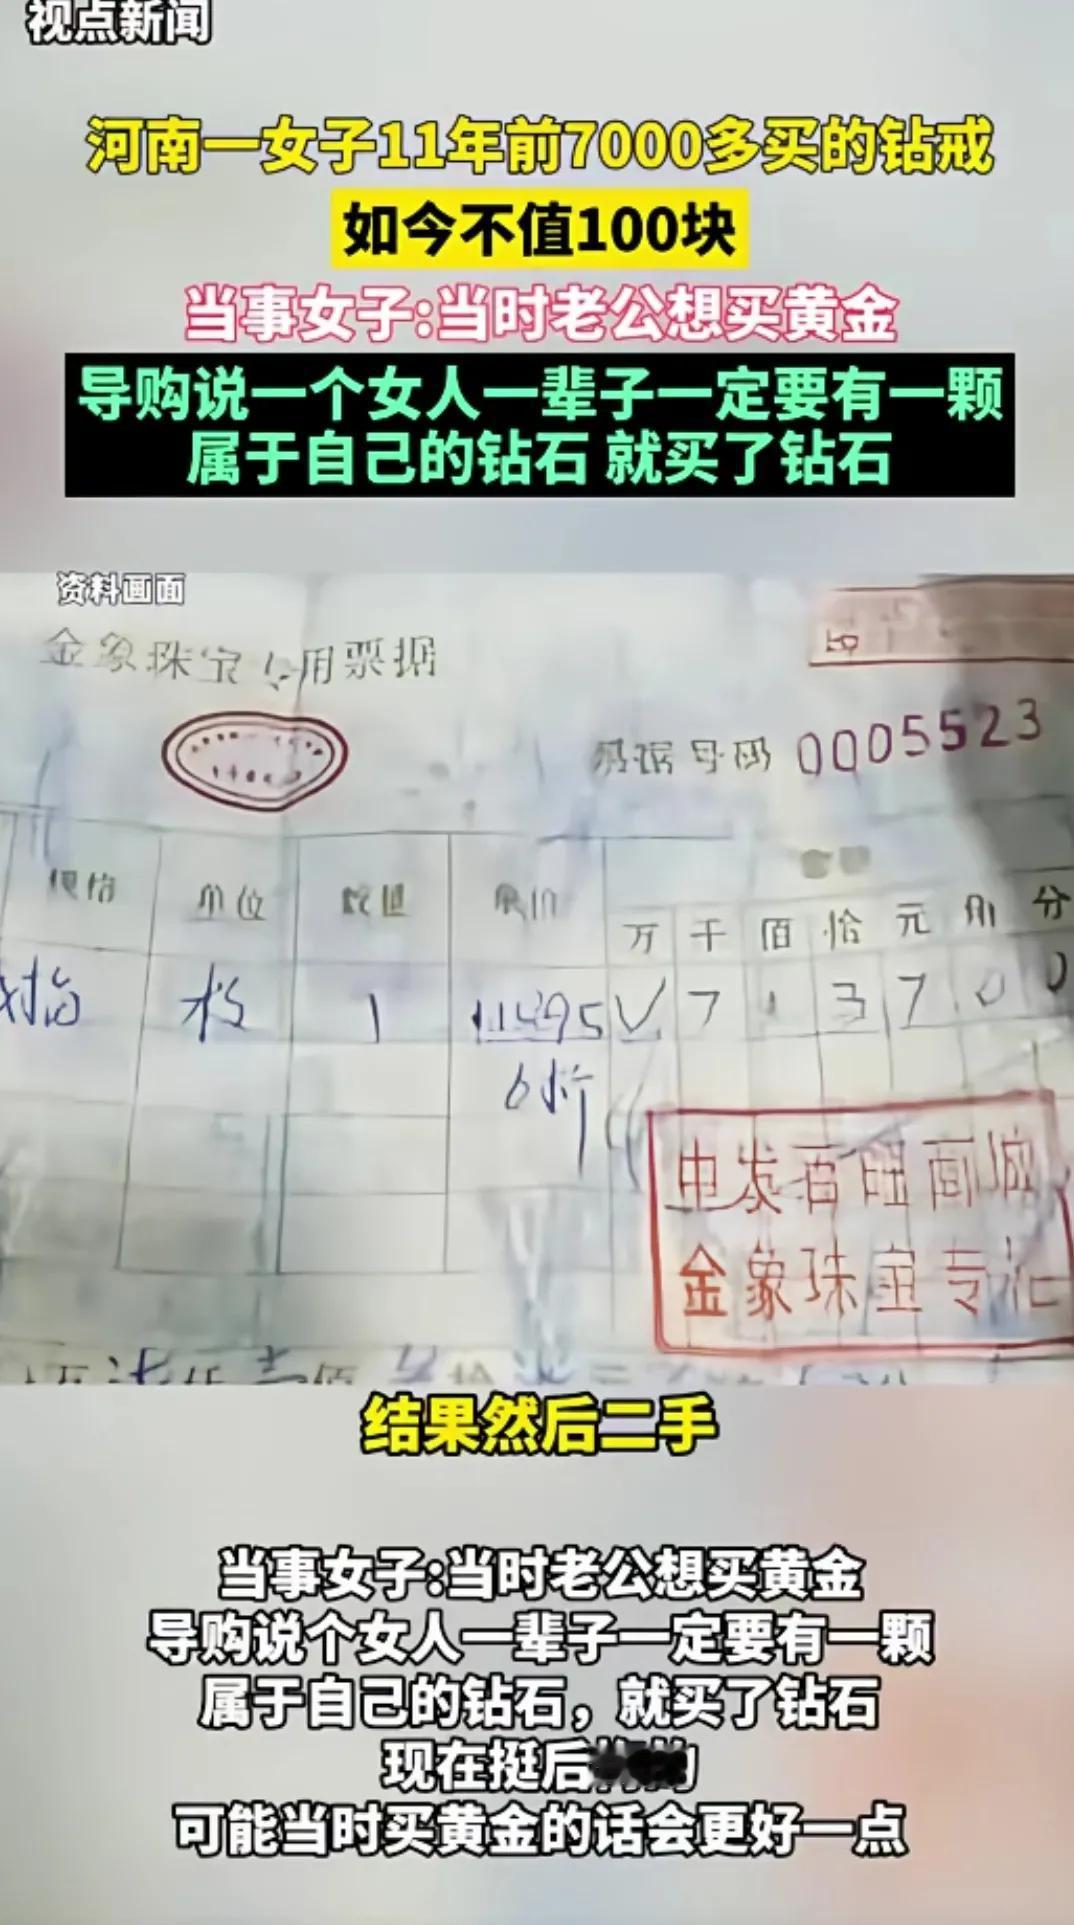 视点新闻
河南一女子11年前7000多买的钻戒
如今不值100块
当事女子:当时老公想买黄金
导购说一个女人一辈子一定要有一颗
属于自己的钻石 就买了钻石
资料画面
金象珠宝 用票据
号码 0005523
单位 数 单价
万 千 佰 拾 元 角 分
1 7 1 3 7 0 0
6折
百 面
金象珠宝专
结果然后二手
当事女子:当时老公想买黄金
导购说个女人一辈子一定要有一颗
属于自己的钻石，就买了钻石
现在挺后
可能当时买黄金的话会更好一点